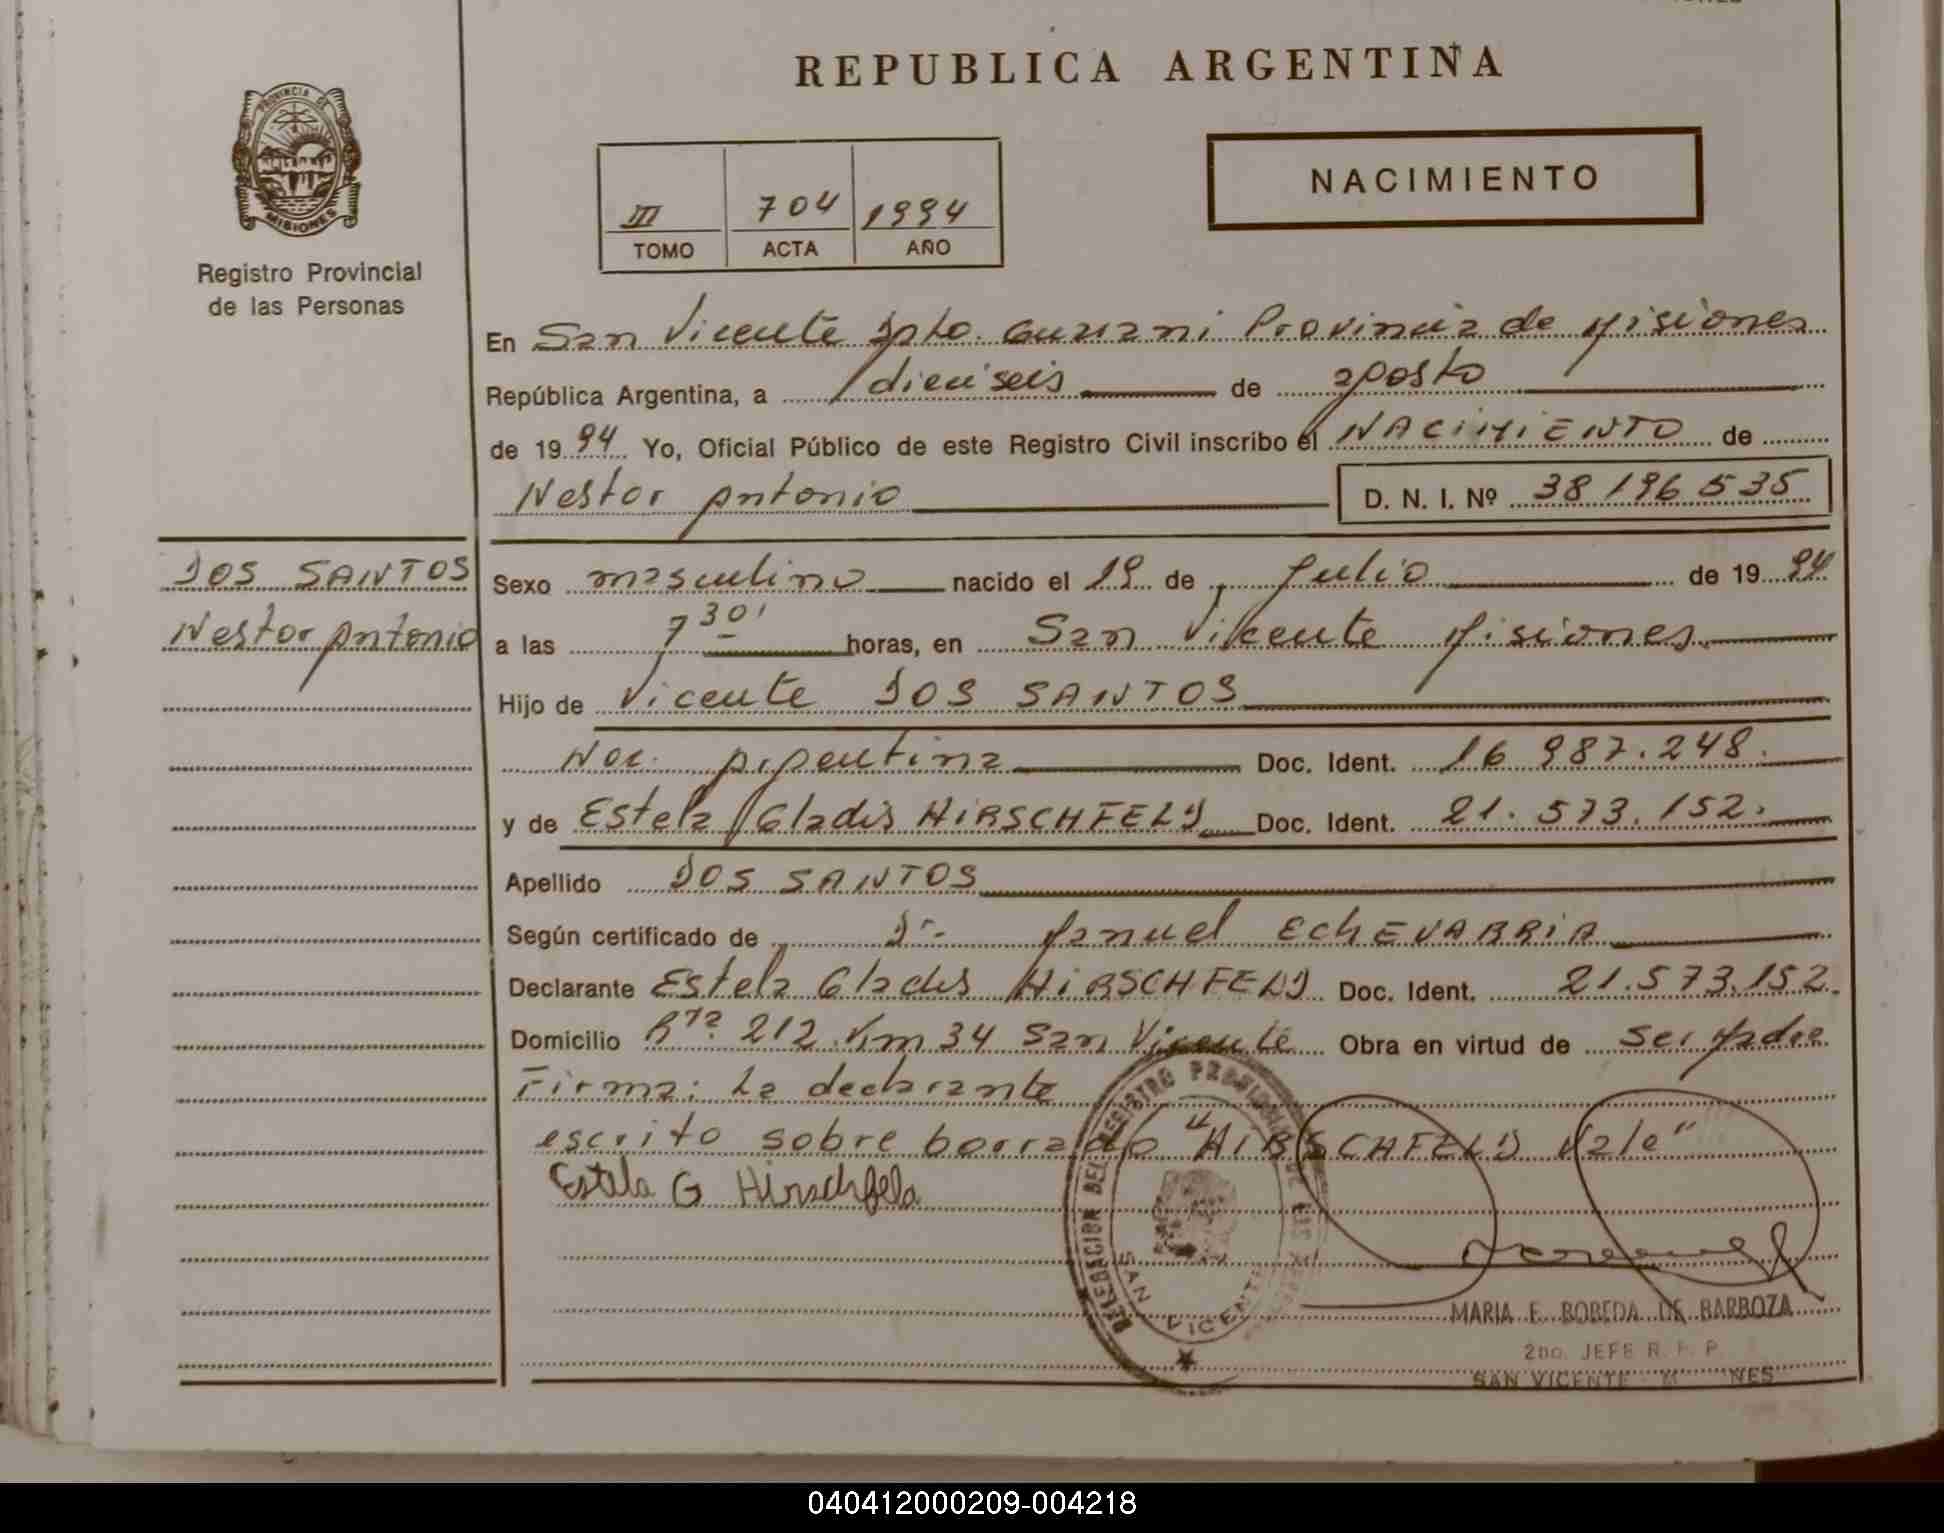 REPUBLICA ARGENTINA
PROVINCIA DE
MISIONES
Registro Provincial
de las Personas
NACIMIENTO
III 704 1994
TOMO ACTA AÑO
En San Vicente Dpto. Guarani Provincia de Misiones
República Argentina, a dieciseis de agosto
de 1994 Yo, Oficial Público de este Registro Civil inscribo el NACIMIENTO de
Nestor Antonio D. N. I. Nº 38 196 535
DOS SANTOS
Nestor Antonio
Sexo masculino nacido el 19 de Julio de 1994
a las 7 30' horas, en San Vicente Misiones
Hijo de Vicente DOS SANTOS
Nac. Argentina Doc. Ident. 16 987.248.
y de Estela Gladis HIRSCHFELD Doc. Ident. 21.573.152.
Apellido DOS SANTOS
Según certificado de Dr. Manuel EChEVARRIA
Declarante Estela Gladis HIRSCHFELD Doc. Ident. 21.573.152.
Domicilio Rta 212 Km 34 San Vicente Obra en virtud de ser Madre
Firma: La declarante
escrito sobre borrado "HIRSCHFELD Vale"
Estela G Hirschfeld
DELEGACION DEL REGISTRO PROVINCIAL DE LAS
SAN VICENTE
MARIA E. BOBEDA DE BARBOZA
2do. JEFE R. P. P.
SAN VICENTE
040412000209-004218